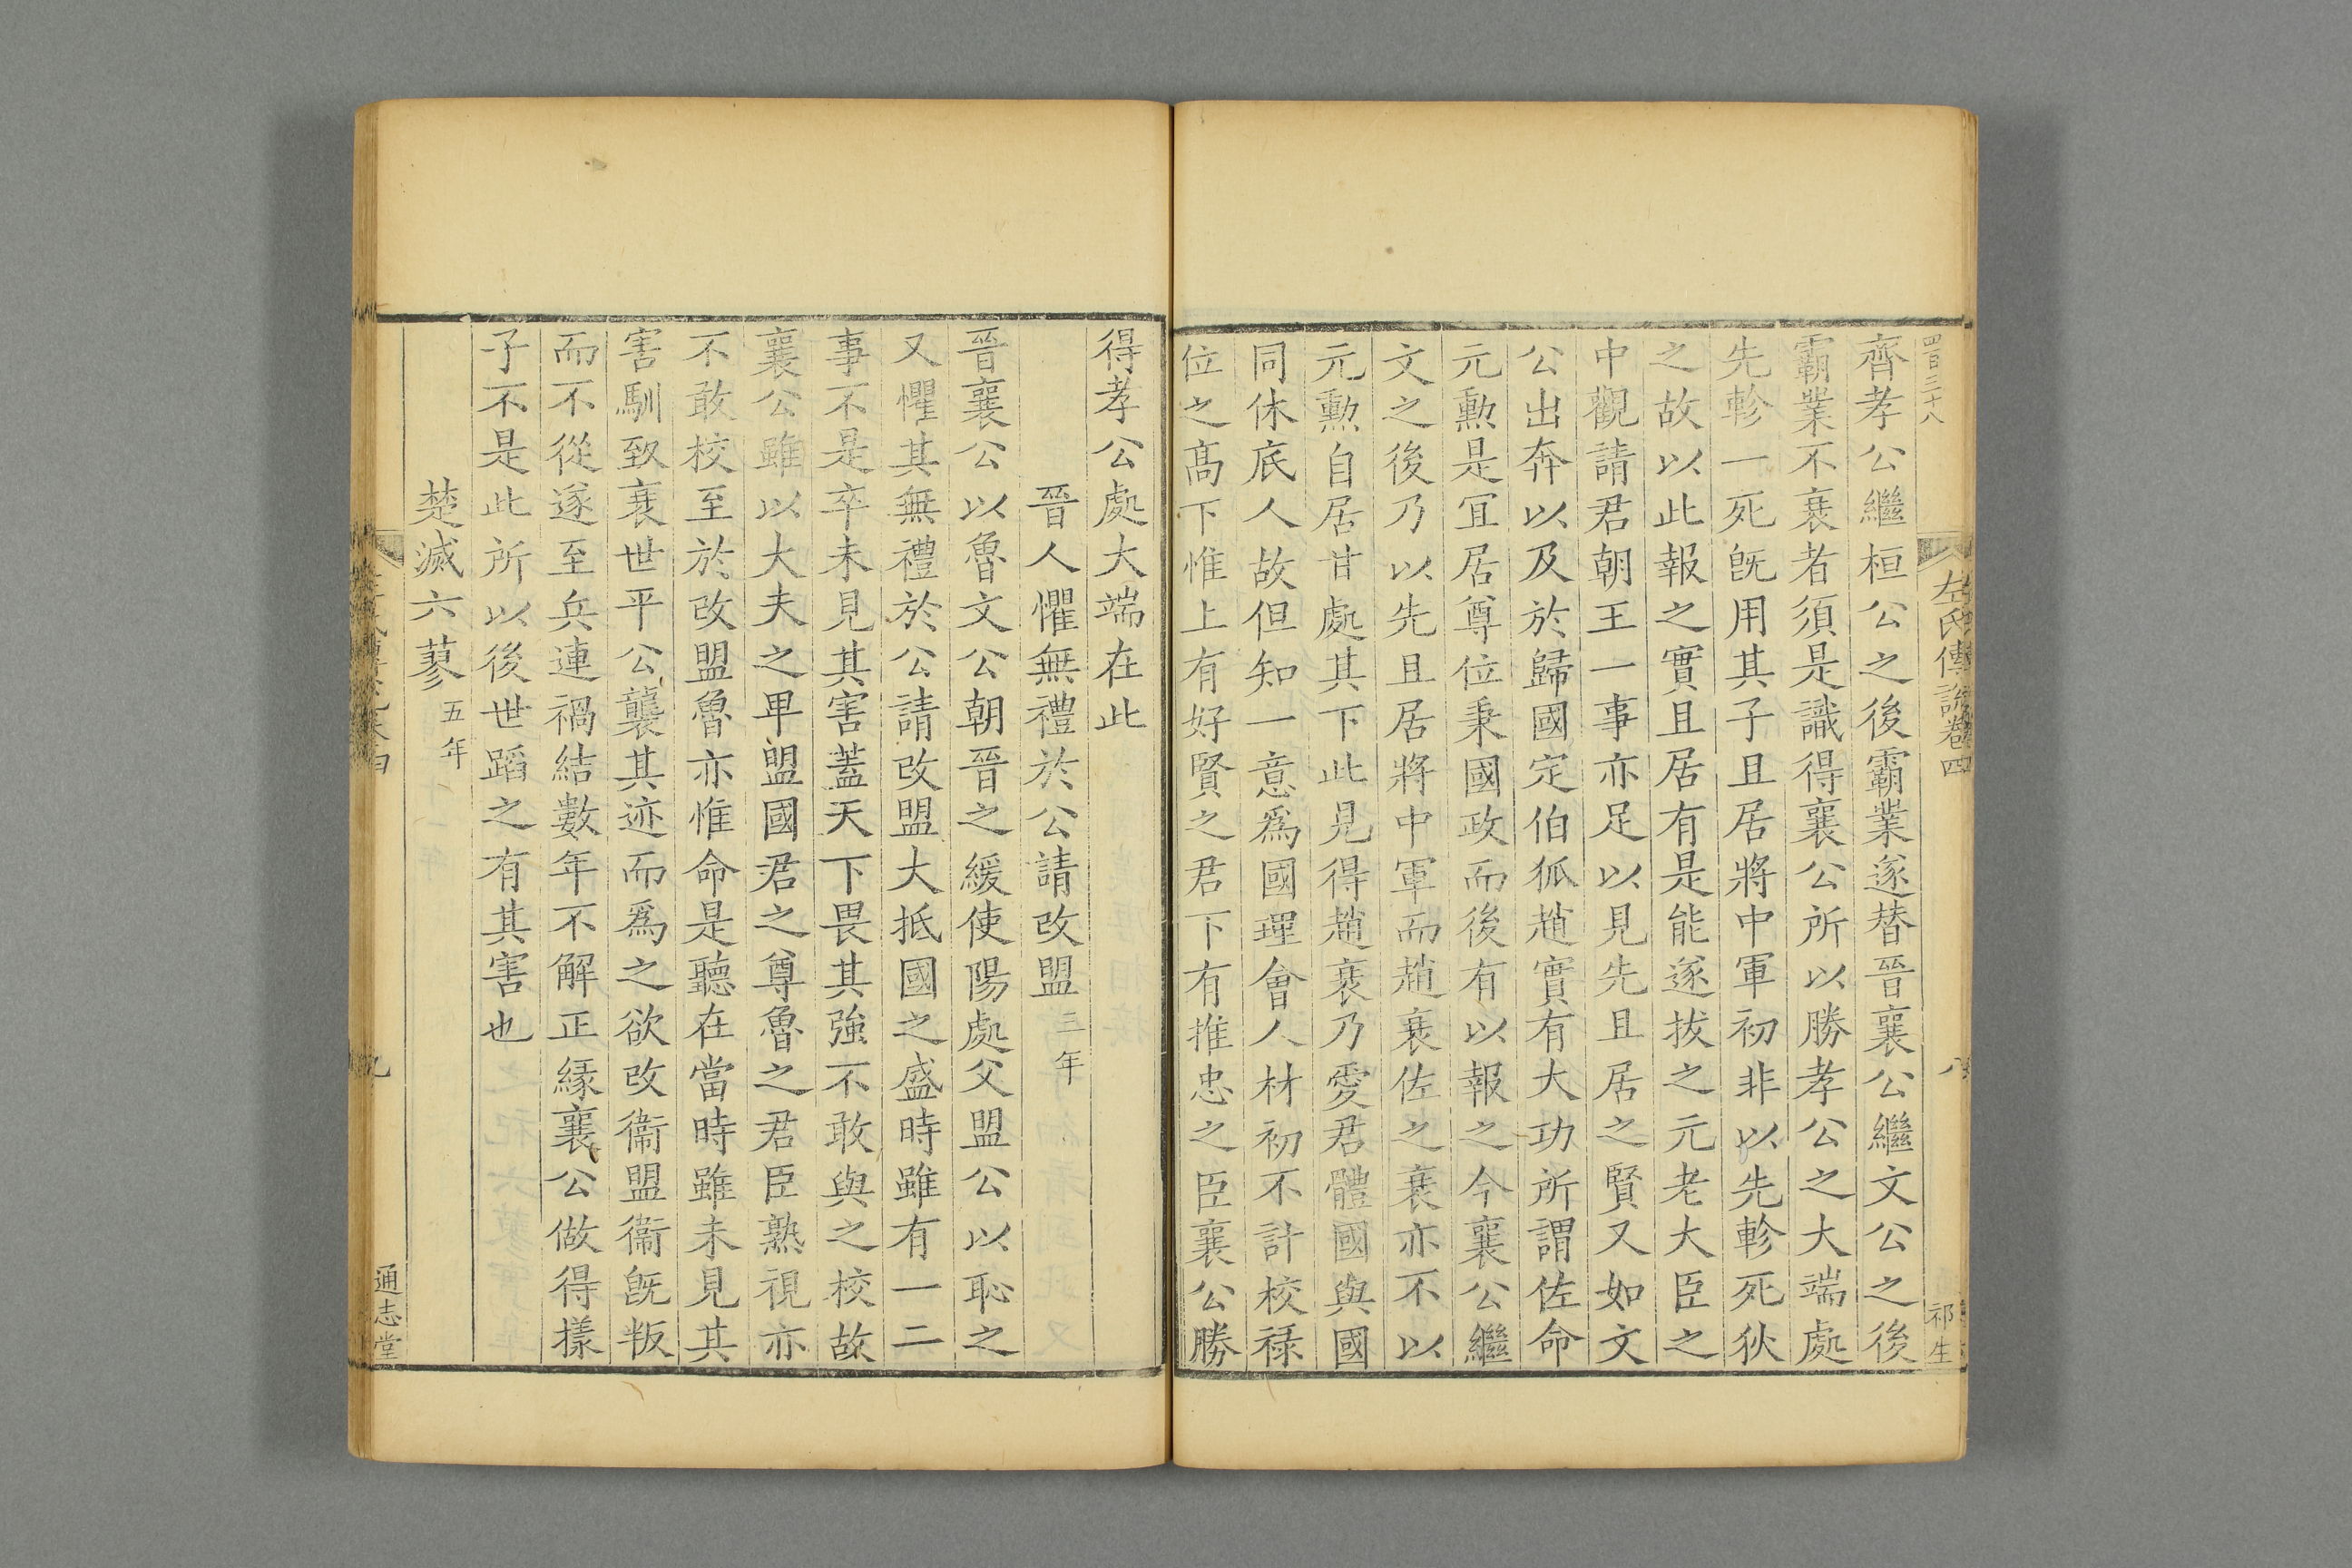 四百三十八
左氏傳說卷四
八
祁生
齊孝公繼桓公之後霸業遂替晉襄公繼文公之後
霸業不衰者須是識得襄公所以勝孝公之大端處
先軫一死旣用其子且居將中軍初非以先軫死狄
之故以此報之實且居有是能遂拔之元老大臣之
中觀請君朝王一事亦足以見先且居之賢又如文
公出奔以及於歸國定伯狐趙實有大功所謂佐命
元勲是宜居尊位秉國政而後有以報之今襄公繼
文之後乃以先且居將中軍而趙衰佐之衰亦不以
元勲自居甘處其下此見得趙衰乃愛君體國與國
同休底人故但知一意爲國理會人材初不計校祿
位之髙下惟上有好賢之君下有推忠之臣襄公勝
得孝公處大端在此
晉人懼無禮於公請改盟三年
晉襄公以魯文公朝晉之緩使陽處父盟公以恥之
又懼其無禮於公請改盟大抵國之盛時雖有一二
事不是卒未見其害蓋天下畏其強不敢與之校故
襄公雖以大夫之卑盟國君之尊魯之君臣熟視亦
不敢校至於改盟魯亦惟命是聽在當時雖未見其
害馴致衰世平公襲其迹而爲之欲改衞盟衞旣叛
而不從遂至兵連禍結數年不解正緣襄公做得樣
子不是此所以後世蹈之有其害也
楚滅六蓼五年
九
通志堂